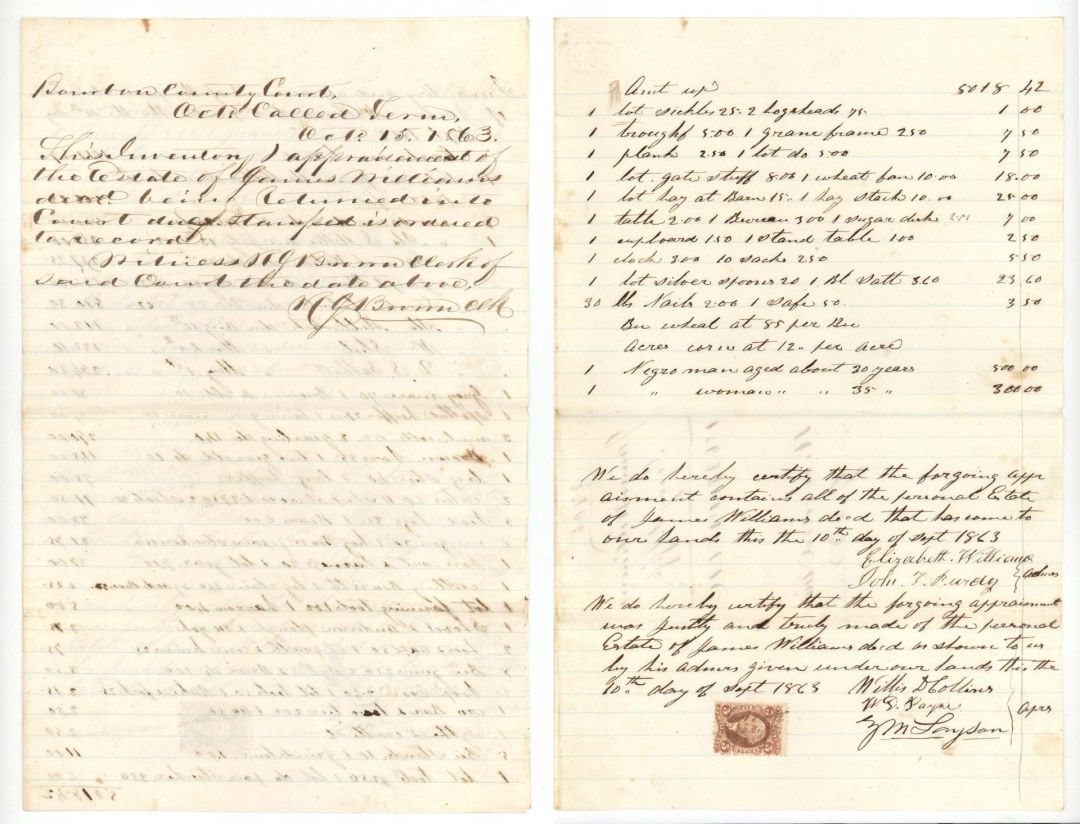 Bourbon County Court,
Octr Called Term,
Octr 15, 1863.
This Inventory & appraisement of
the Estate of James Williams
decd being Returned into
Court duly Stamped is ordered
to record
Witness R J Brown Clerk of
said Court the date above.
R J Brown Clk
Amt up 5018 42
1 lot sickles 25. 2 hogsheads 75. 1 00
1 trough 5.00 1 frame 250 7 50
1 plank 2.50 1 lot do 500 7 50
1 lot gate stuff 8.00 1 wheat fan 10.00 18.00
1 lot hay at Barn 15. 1 hay stack 10.00 25 00
1 table 200 1 Bureau 300 1 sugar desk 7 00
1 cupboard 150 1 stand table 100 2 50
1 clock 300 10 sacks 250 5 50
1 lot silver spoons 20 1 Bl Salt 360 23.60
30 lbs Nails 200 1 Safe 50. 3 50
Bu wheat at 85 per Bu
Acres corn at 12. per acre
1 Negro man aged about 30 years 500 00
1 " woman " " 35 " 300 00
We do hereby certify that the forgoing appr
aisment contains all of the personal Estate
of James Williams decd that has come to
our hands this the 10th day of Sept 1863
Elizabeth Williams
John T. Purdy } Admrs
We do hereby certify that the forgoing appraisment
was justly and truly made of the personal
Estate of James Williams decd as shown to us
by his admrs given under our hands this the
10th day of Sept 1863 Willis D Collins
W. D. Payne } Aprs
Z M Layson